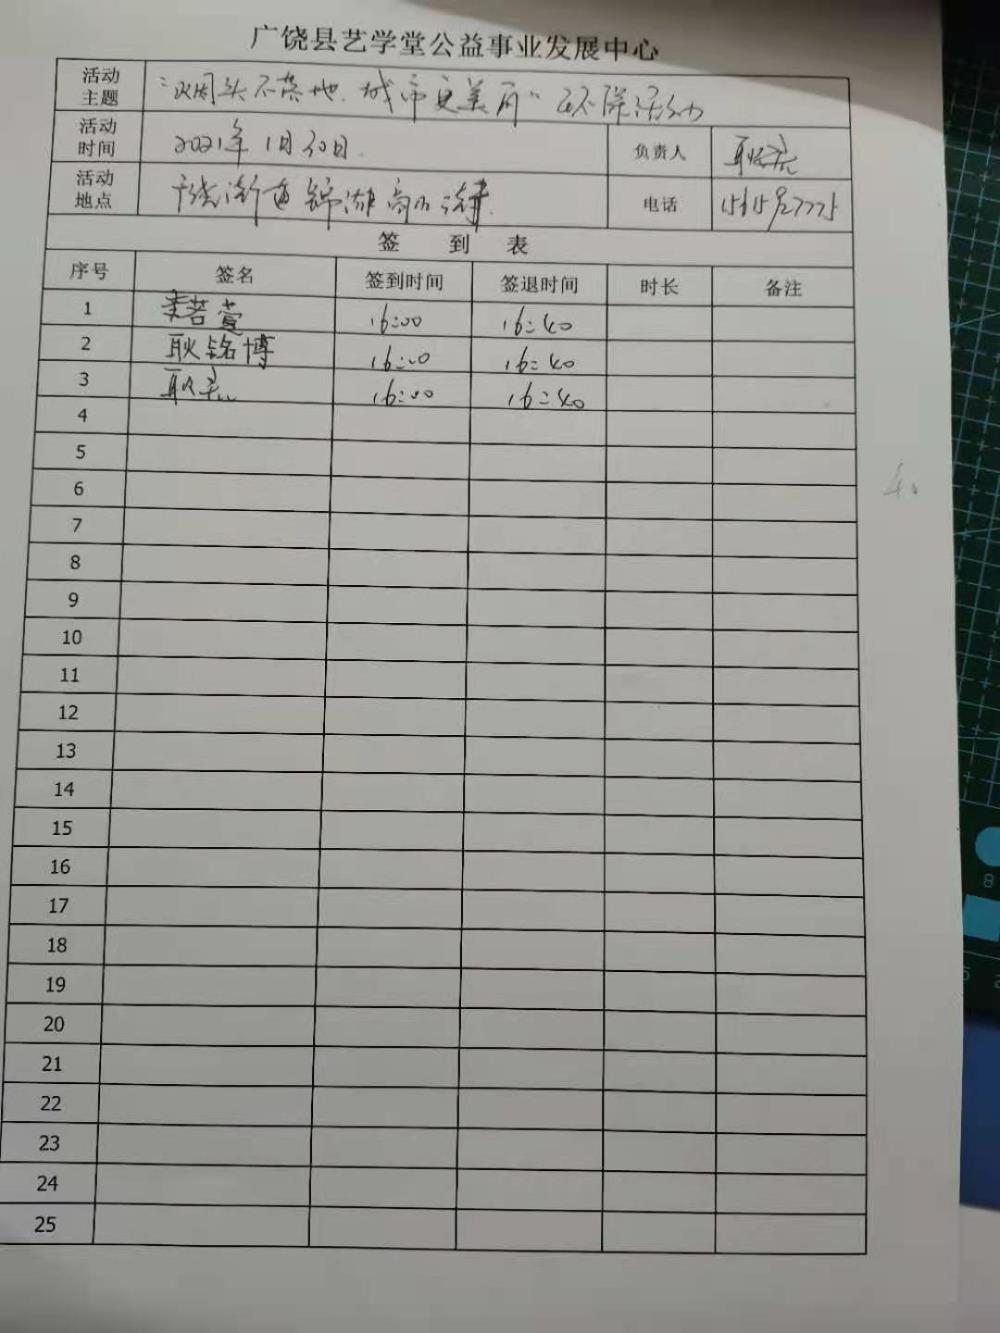 广饶县艺学堂公益事业发展中心
活动主题 "烟头不落地、城市更美丽" 环保活动
活动时间 2021年1月30日 负责人
活动地点 电话
签 到 表
序号 签名 签到时间 签退时间 时长 备注
1 若萱 16:00 16:40
2 耿铭博 16:00 16:40
3 16:00 16:40
4
5
6
7
8
9
10
11
12
13
14
15
16
17
18
19
20
21
22
23
24
25